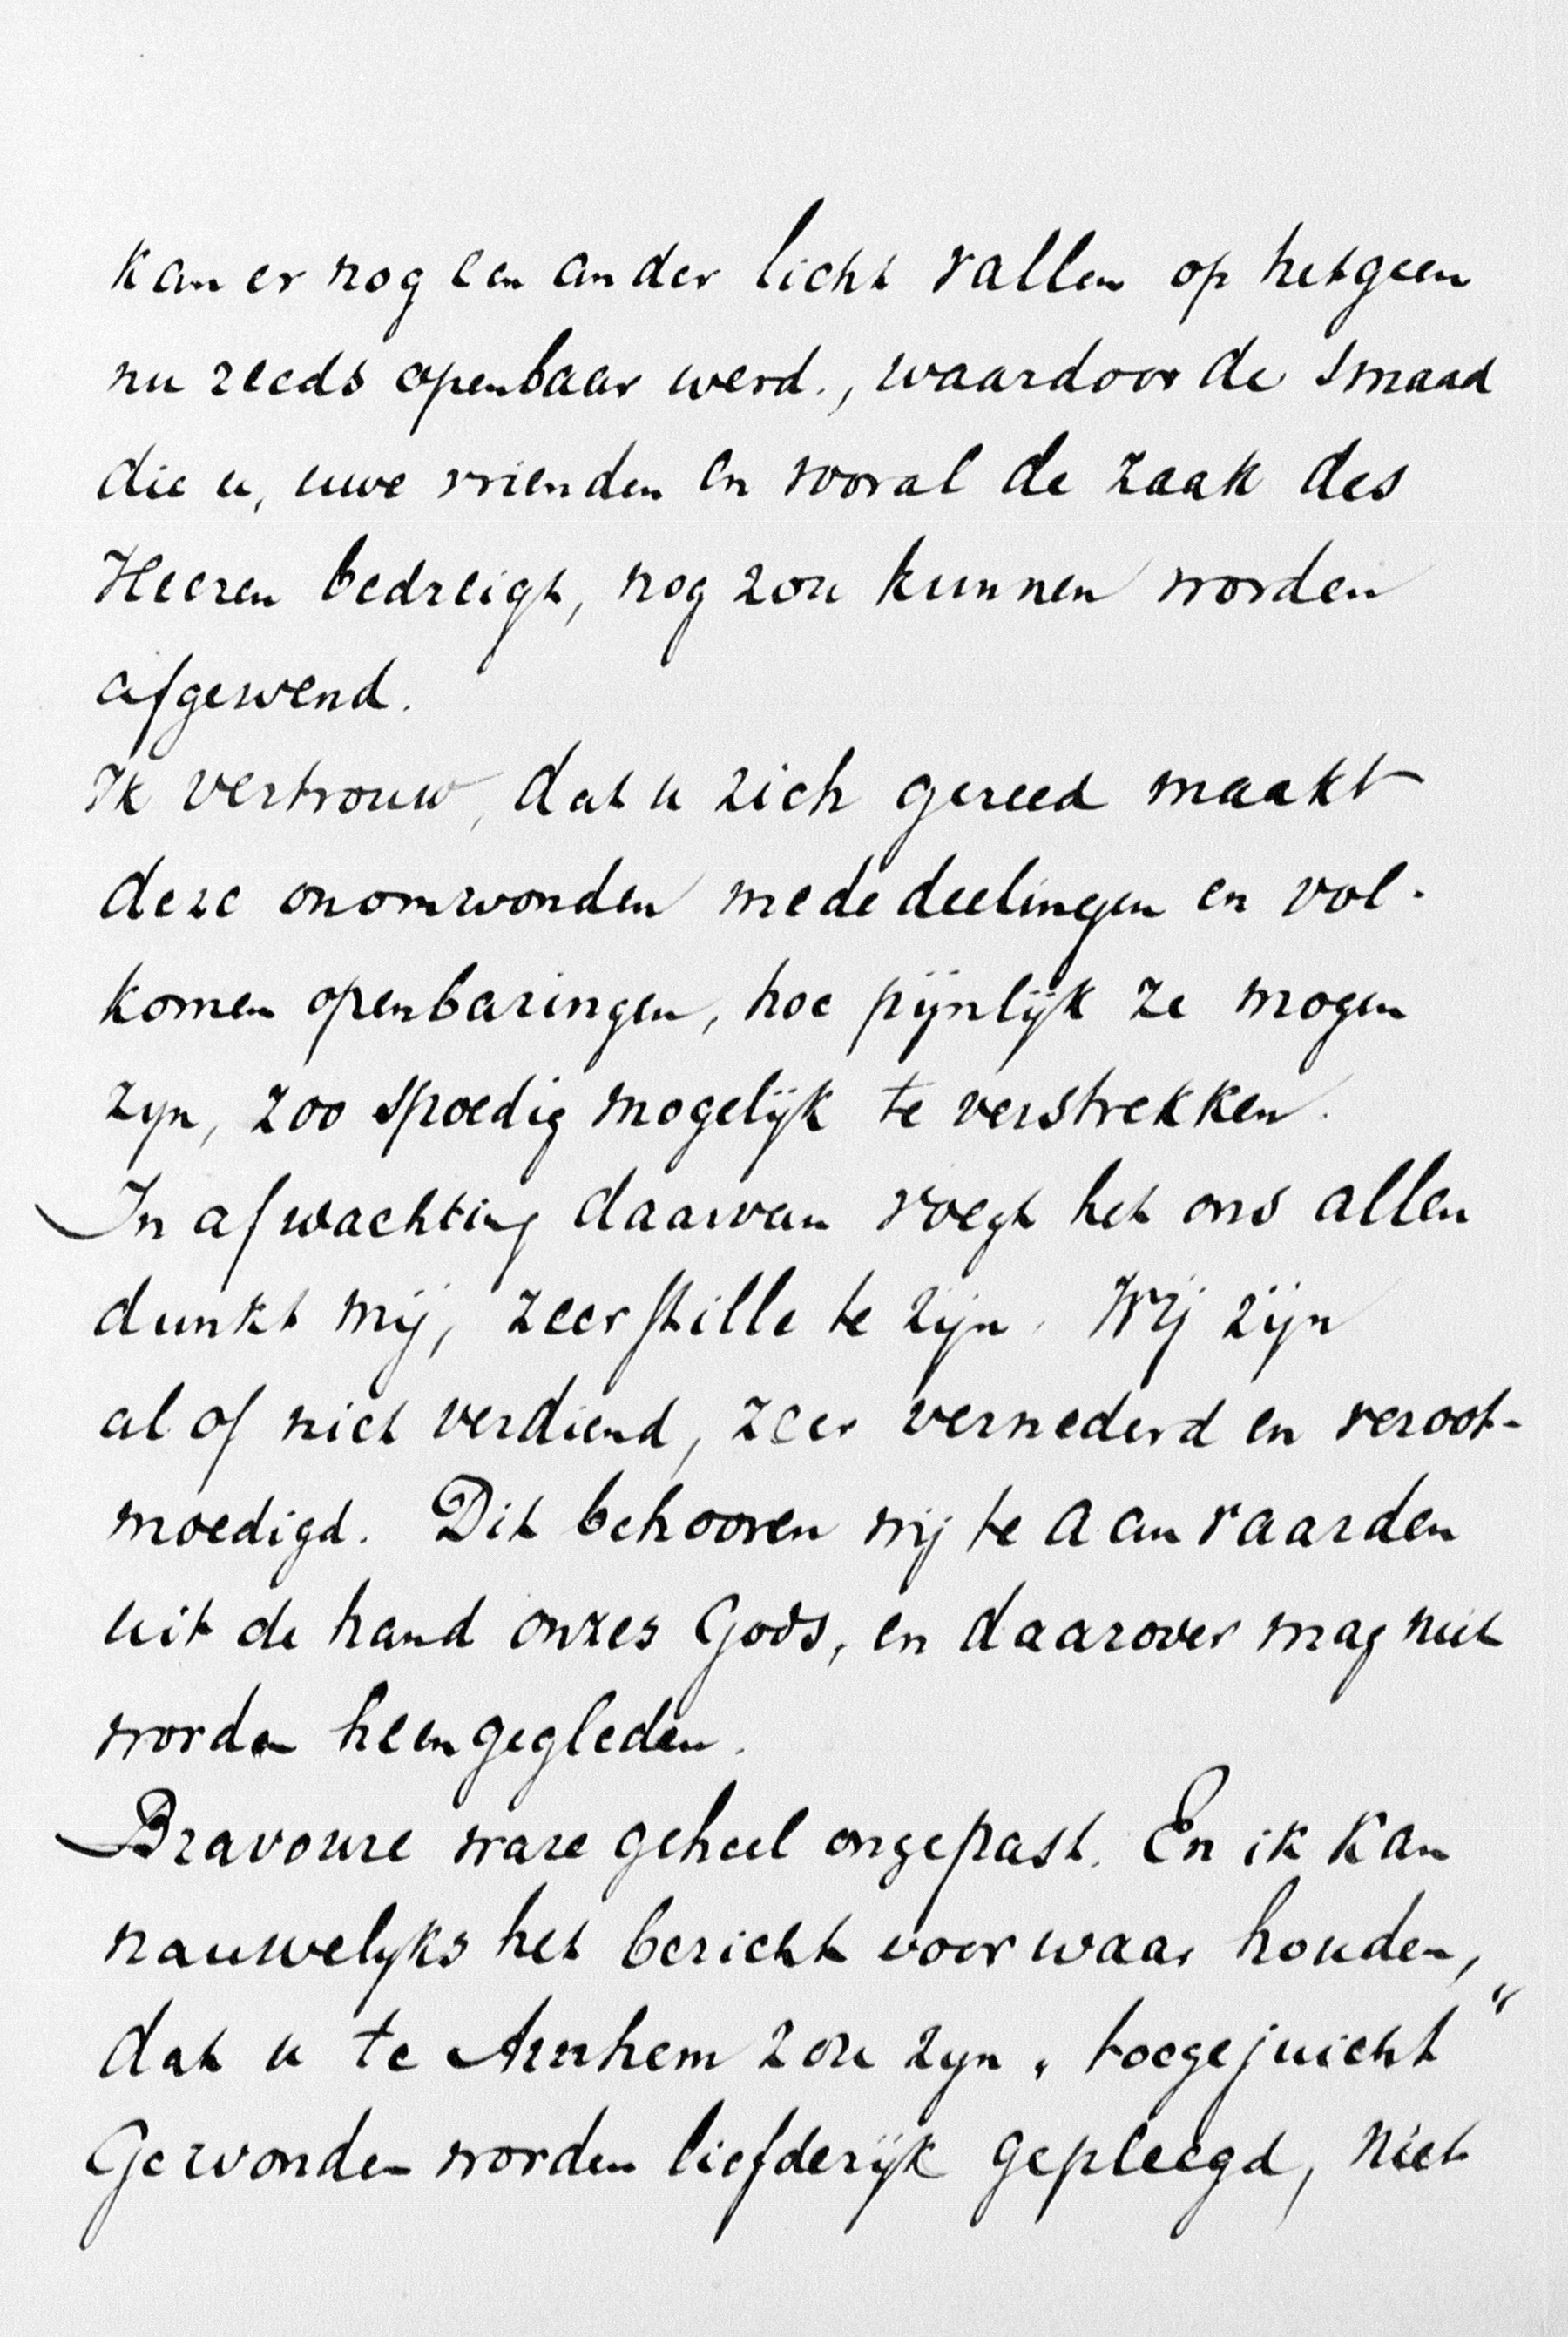 kan er nog een ander licht vallen op hetgeen
nu reeds openbaar werd., waardoor de smaad
die u, uwe vrienden en vooral de zaak des
Heeren bedreigt, nog zou kunnen worden
afgewend.
Ik vertrouw, dat u zich gereed maakt
deze onomwonden mededeelingen en vol-
komen openbaringen, hoe pijnlijk ze mogen
zyn, zoo spoedig mogelijk te verstrekken.
In afwachting daarvan voegt het ons allen
dunkt mij, zeer stille te zijn. Wij zijn
al of niet verdiend, zeer vernederd en veroot-
moedigd. Dit behooren wij te aanvaarden
uit de hand onzes Gods, en daarover mag niet
worden heengegleden.
Bravoure ware geheel ongepast. En ik kan
nauwelyks het bericht voor waar houden,
dat u te Arnhem zou zyn „toegejuicht“
Gewonden worden liefderijk gepleegd, niet